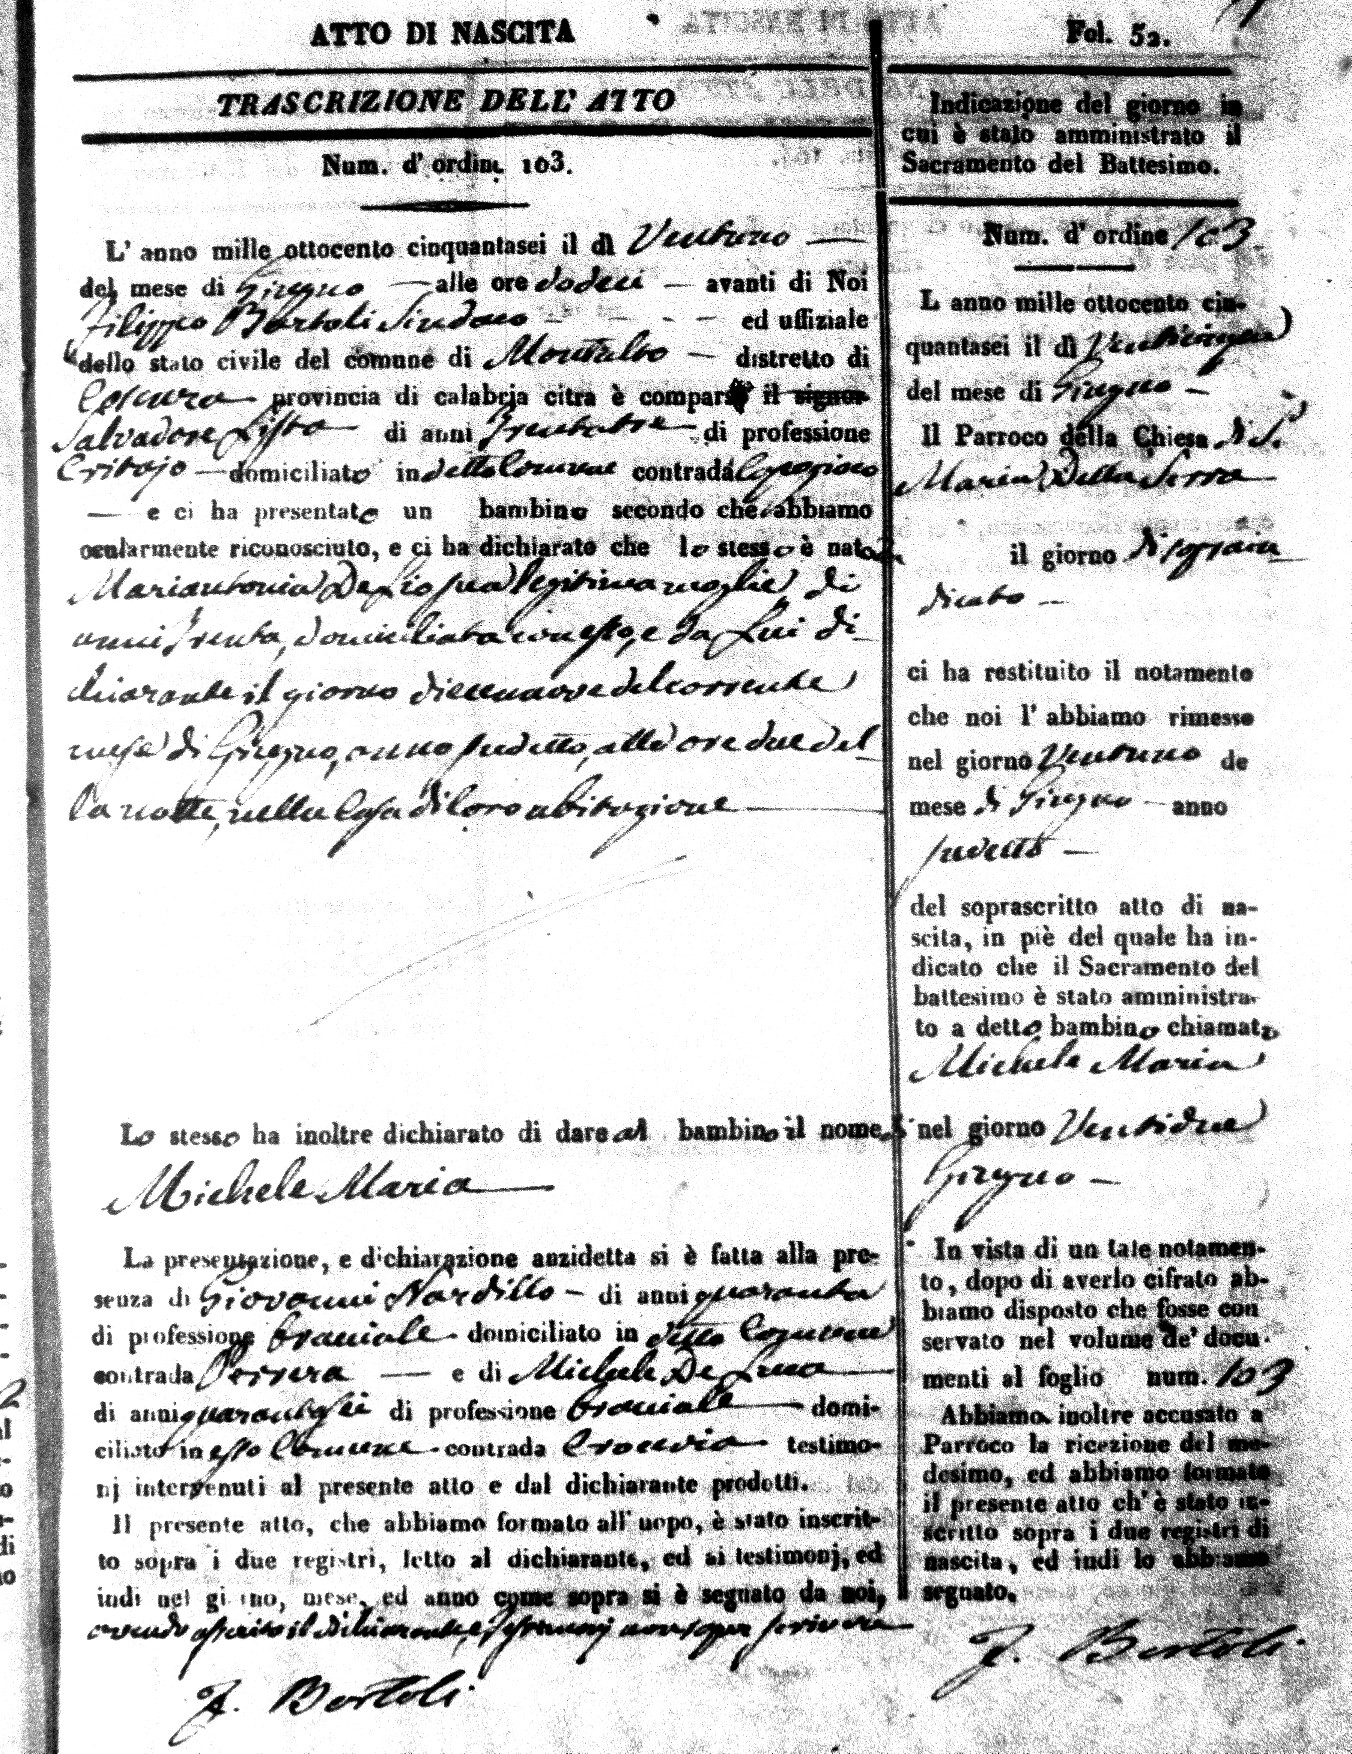 ATTO DI NASCITA
TRASCRIZIONE DELL' ATTO
Num. d' ordine 103.
L' anno mille ottocento cinquantasei il dì Ventuno
del mese di Giugno alle ore dodeci avanti di Noi
Filippo Bartoli Sindaco ed uffiziale
dello stato civile del comune di Montalto distretto di
Cosenza provincia di calabria citra è comparso il signor
Salvadore di anni Trentatre di professione
domiciliato in detto Comune contrada
e ci ha presentato un bambino secondo che abbiamo
ocularmente riconosciuto, e ci ha dichiarato che lo stesso è nato da
Mariantonia De Lio sua legitima moglie di
anni trenta, domiciliata con esso, e da Lui di
chiarante il giorno diecennove del corrente
mese di Giugno, anno sudetto, alle ore due del
la notte, nella Casa di loro abitazione
Lo stesso ha inoltre dichiarato di dare al bambino il nome di
Michele Maria
La presentazione, e dichiarazione anzidetta si è fatta alla pre-
senza di Giovanni Nardillo di anni quaranta
di professione braciale domiciliato in detto Comune
contrada e di Michele De Luca
di anni quarantasei di professione braciale domi-
ciliato in esso Comune contrada testimo-
nj intervenuti al presente atto e dal dichiarante prodotti.
Il presente atto, che abbiamo formato all' uopo, è stato inscrit-
to sopra i due registri, letto al dichiarante, ed ai testimonj, ed
indi nel giorno, mese, ed anno come sopra si è segnato da noi,
avendo asserito il dichiarante, e Testimonj non saper scrivere
F. Bartoli
Fol. 52.
Indicazione del giorno in
cui è stato amministrato il
Sacramento del Battesimo.
Num. d' ordine 103
L anno mille ottocento cin-
quantasei il dì Venticinque
del mese di Giugno
Il Parroco della Chiesa di S.
Maria Della Serra
il giorno di sopra in
dicato
ci ha restituito il notamento
che noi l' abbiamo rimesso
nel giorno Ventuno de
mese di Giugno anno
sudetto
del soprascritto atto di na-
scita, in piè del quale ha in-
dicato che il Sacramento del
battesimo è stato amministra-
to a detto bambino chiamato
Michele Maria
nel giorno Ventidue
Giugno
In vista di un tale notamen-
to, dopo di averlo cifrato ab-
biamo disposto che fosse con
servato nel volume de' docu-
menti al foglio num. 103
Abbiamo inoltre accusato a
Parroco la ricezione del me-
desimo, ed abbiamo formato
il presente atto ch' è stato in-
scritto sopra i due registri di
nascita, ed indi lo abbiamo
segnato.
F. Bartoli